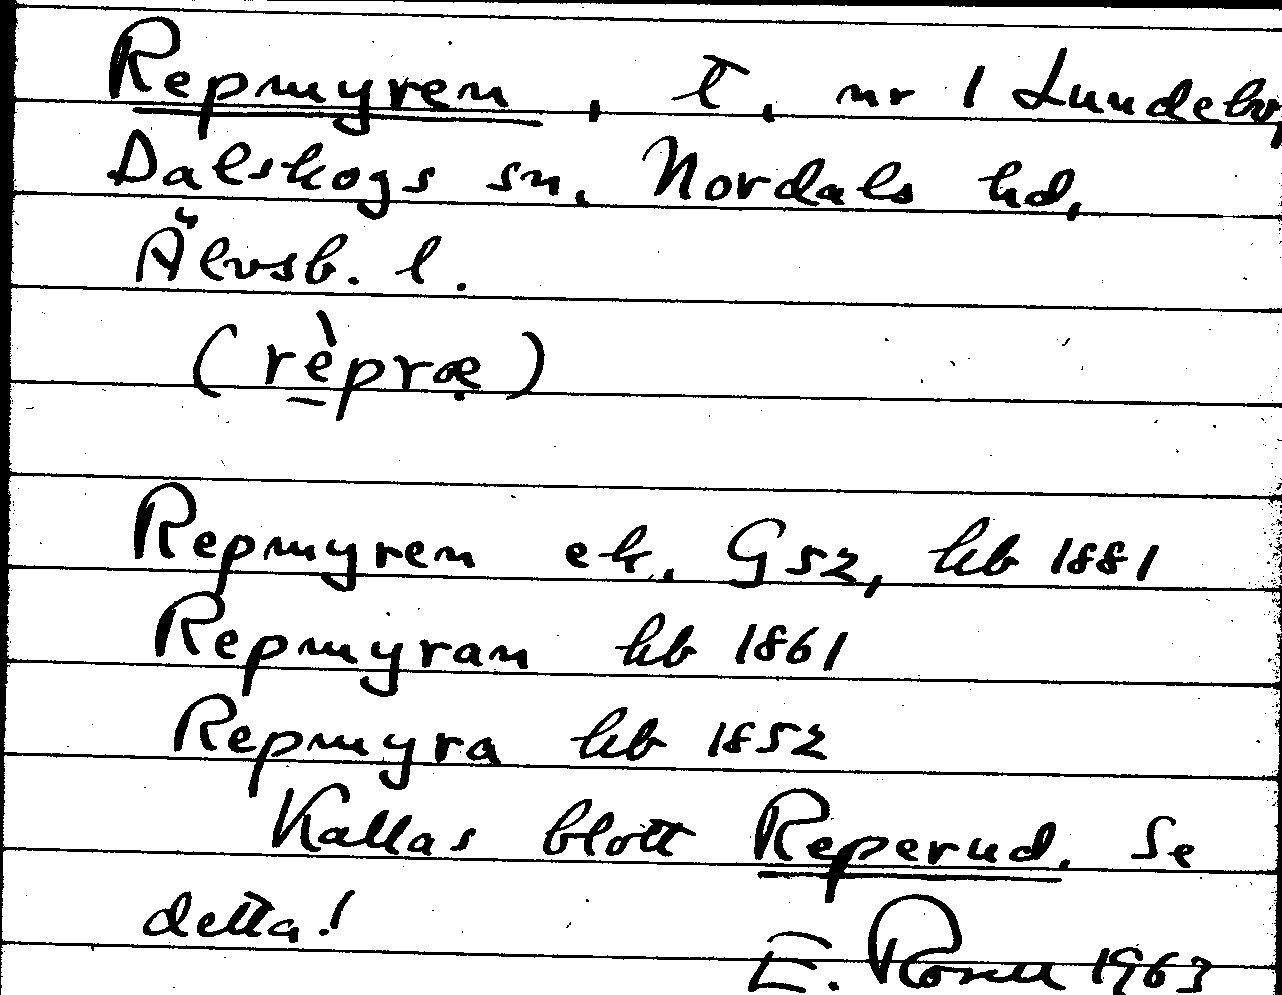 Repmyren, t, nr 1 Lundeby
Dalskogs sn. Nordals hd,
Älvsb. l.
(rè̠præ̣)
Repmyren ek. G 52, hb 1881
Repmyran hb 1861
Repmyra hb 1852
Kallas blott Reperud. Se
detta!
E. 1963